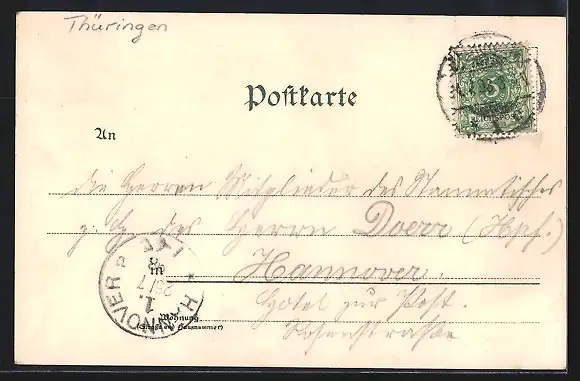 Thüringen
Postkarte
An
die Herren Mitglieder des Stammtisches
z. H. des Herrn Doerr (Hpf.)
in Hannover.
Hotel zur Post.
Rosenstraße
Wohnung
(Straße und Hausnummer)
HANNOVER
1.
25/7